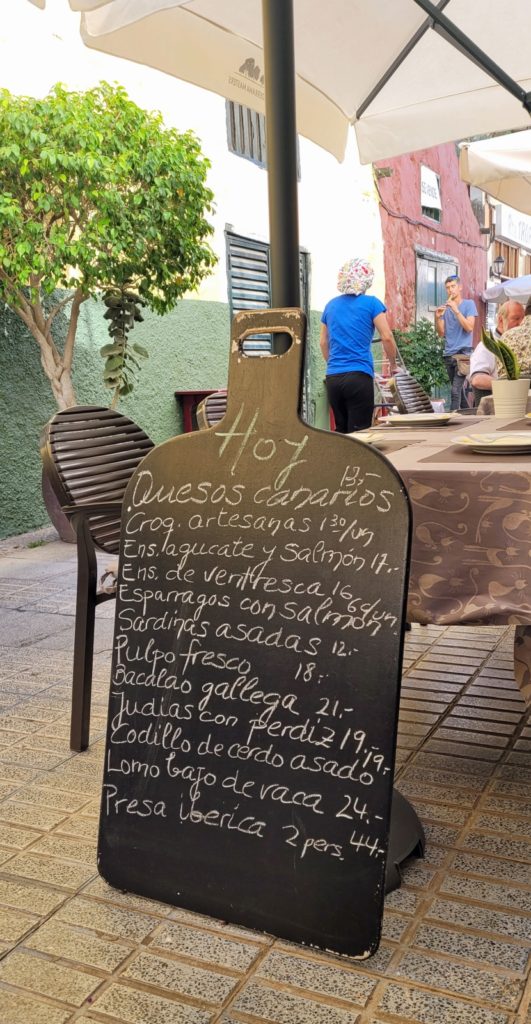 Hoy
Quesos canarios 13,-
Croq. artesanas 1³⁰/un
Ens. agucate y salmón 17.-
Ens. de ventresca 16
Esparragos con salmón 6⁶⁰/un
Sardinas asadas 12.-
Pulpo fresco 18.-
Bacalao gallega 21,-
Judias con perdiz 19,-
Codillo de cerdo asado 19.-
Lomo bajo de vaca 24.-
Presa iberica 2 pers. 44.-